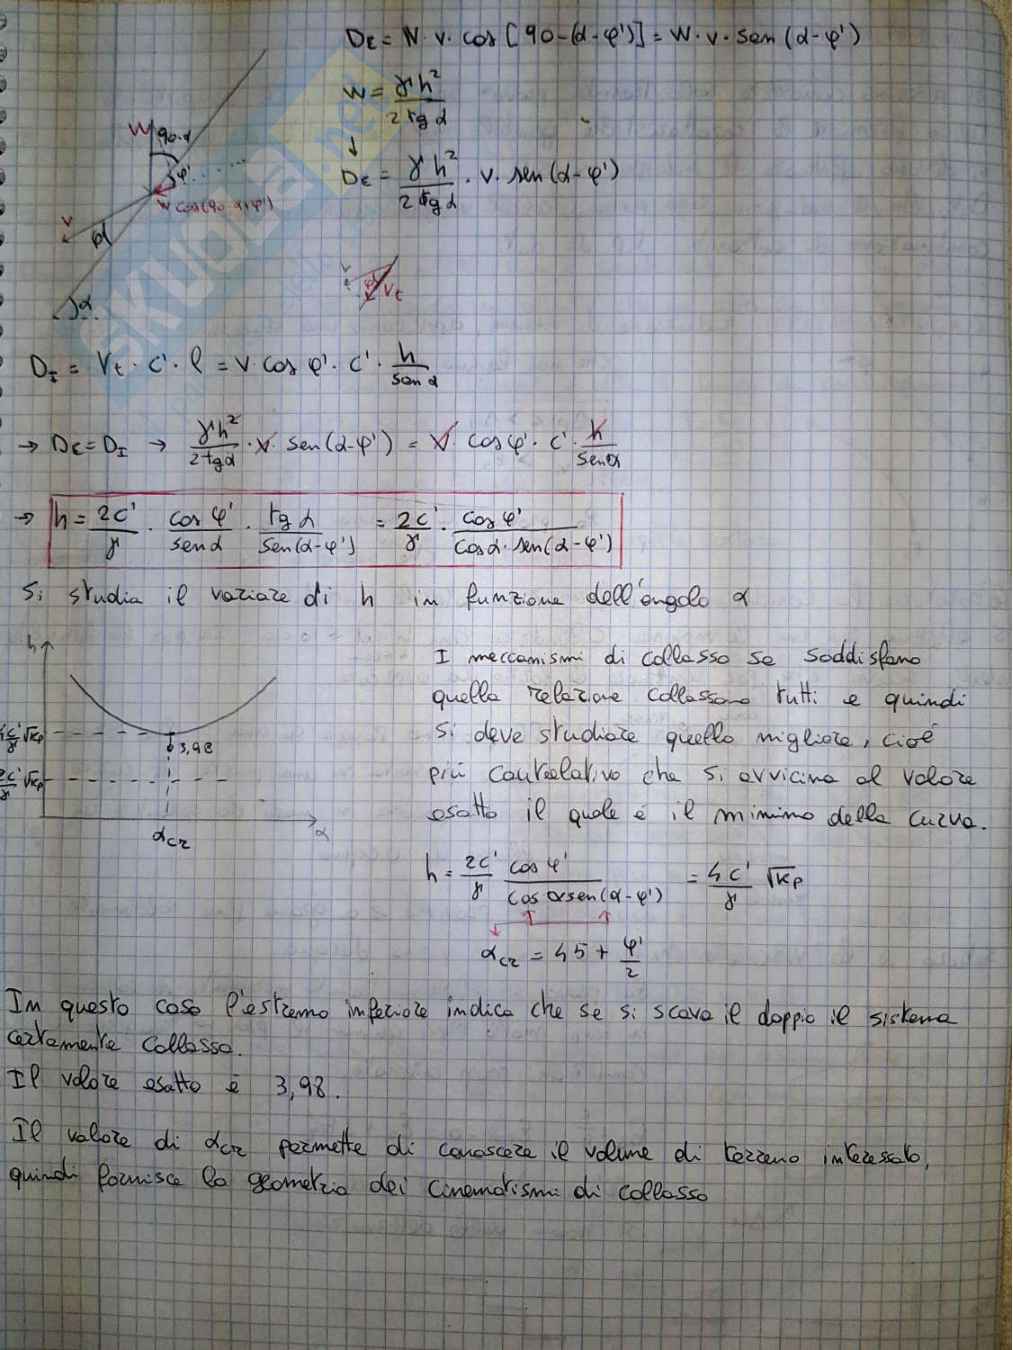 D_E = W · v · cos [90-(α-φ')] = W · v · sen (α-φ')
W = γ h² / 2 tg α
↓
D_E = γ h² / 2 tg α · v · sen (α-φ')
W 90-α
φ'
W cos(90-α+φ')
v
φ'
α
v φ' v_t
SKUOLA.net
D_I = V_t · c' · l = v · cos φ' · c' · h / sen α
→ D_E = D_I → γ h² / 2 tg α · v · sen (α-φ') = v · cos φ' · c' · h / sen α
→ h = 2c' / γ · cos φ' / sen α · tg α / sen(α-φ') = 2c' / γ · cos φ' / cos α · sen (α-φ')
Si studia il variare di h in funzione dell'angolo α
h
4c'/γ √Kp
3,98
2c'/γ √Kp
α_cr
α
I meccanismi di collasso se soddisfano
quella relazione collassano tutti e quindi
si deve studiare quello migliore, cioè
più cautelativo che si avvicina al valore
esatto il quale è il minimo della curva.
h = 2c' / γ cos φ' / cos α sen (α-φ') = 4c' / γ √Kp
α_cr = 45 + φ' / 2
In questo caso l'estremo inferiore indica che se si scava il doppio il sistema
certamente collassa.
Il valore esatto è 3,98.
Il valore di α_cr permette di conoscere il volume di terreno interessato,
quindi fornisce la geometria dei cinematismi di collasso